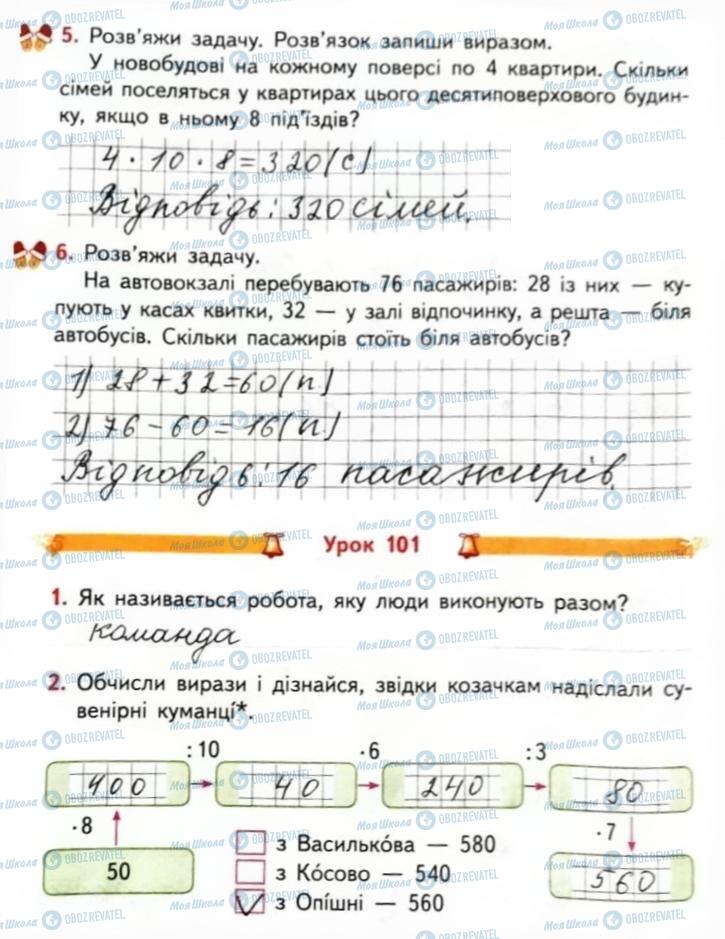 5. Розв'яжи задачу. Розв'язок запиши виразом.
У новобудові на кожному поверсі по 4 квартири. Скільки
сімей поселяться у квартирах цього десятиповерхового будин-
ку, якщо в ньому 8 під'їздів?
4 · 10 · 8 = 320 (с)
Відповідь: 320 сімей.
6. Розв'яжи задачу.
На автовокзалі перебувають 76 пасажирів: 28 із них — ку-
пують у касах квитки, 32 — у залі відпочинку, а решта — біля
автобусів. Скільки пасажирів стоїть біля автобусів?
1) 28 + 32 = 60 (п.)
2) 76 - 60 = 16 (п.)
Відповідь: 16 пасажирів.
Урок 101
1. Як називається робота, яку люди виконують разом?
команда
2. Обчисли вирази і дізнайся, звідки козачкам надіслали су-
венірні куманці*.
:10 ·6 :3
400 40 240 80
·8 ·7
50 560
з Василько́ва — 580
з Ко́сово — 540
з Опі́шні — 560
МояШкола OBOZREVATEL